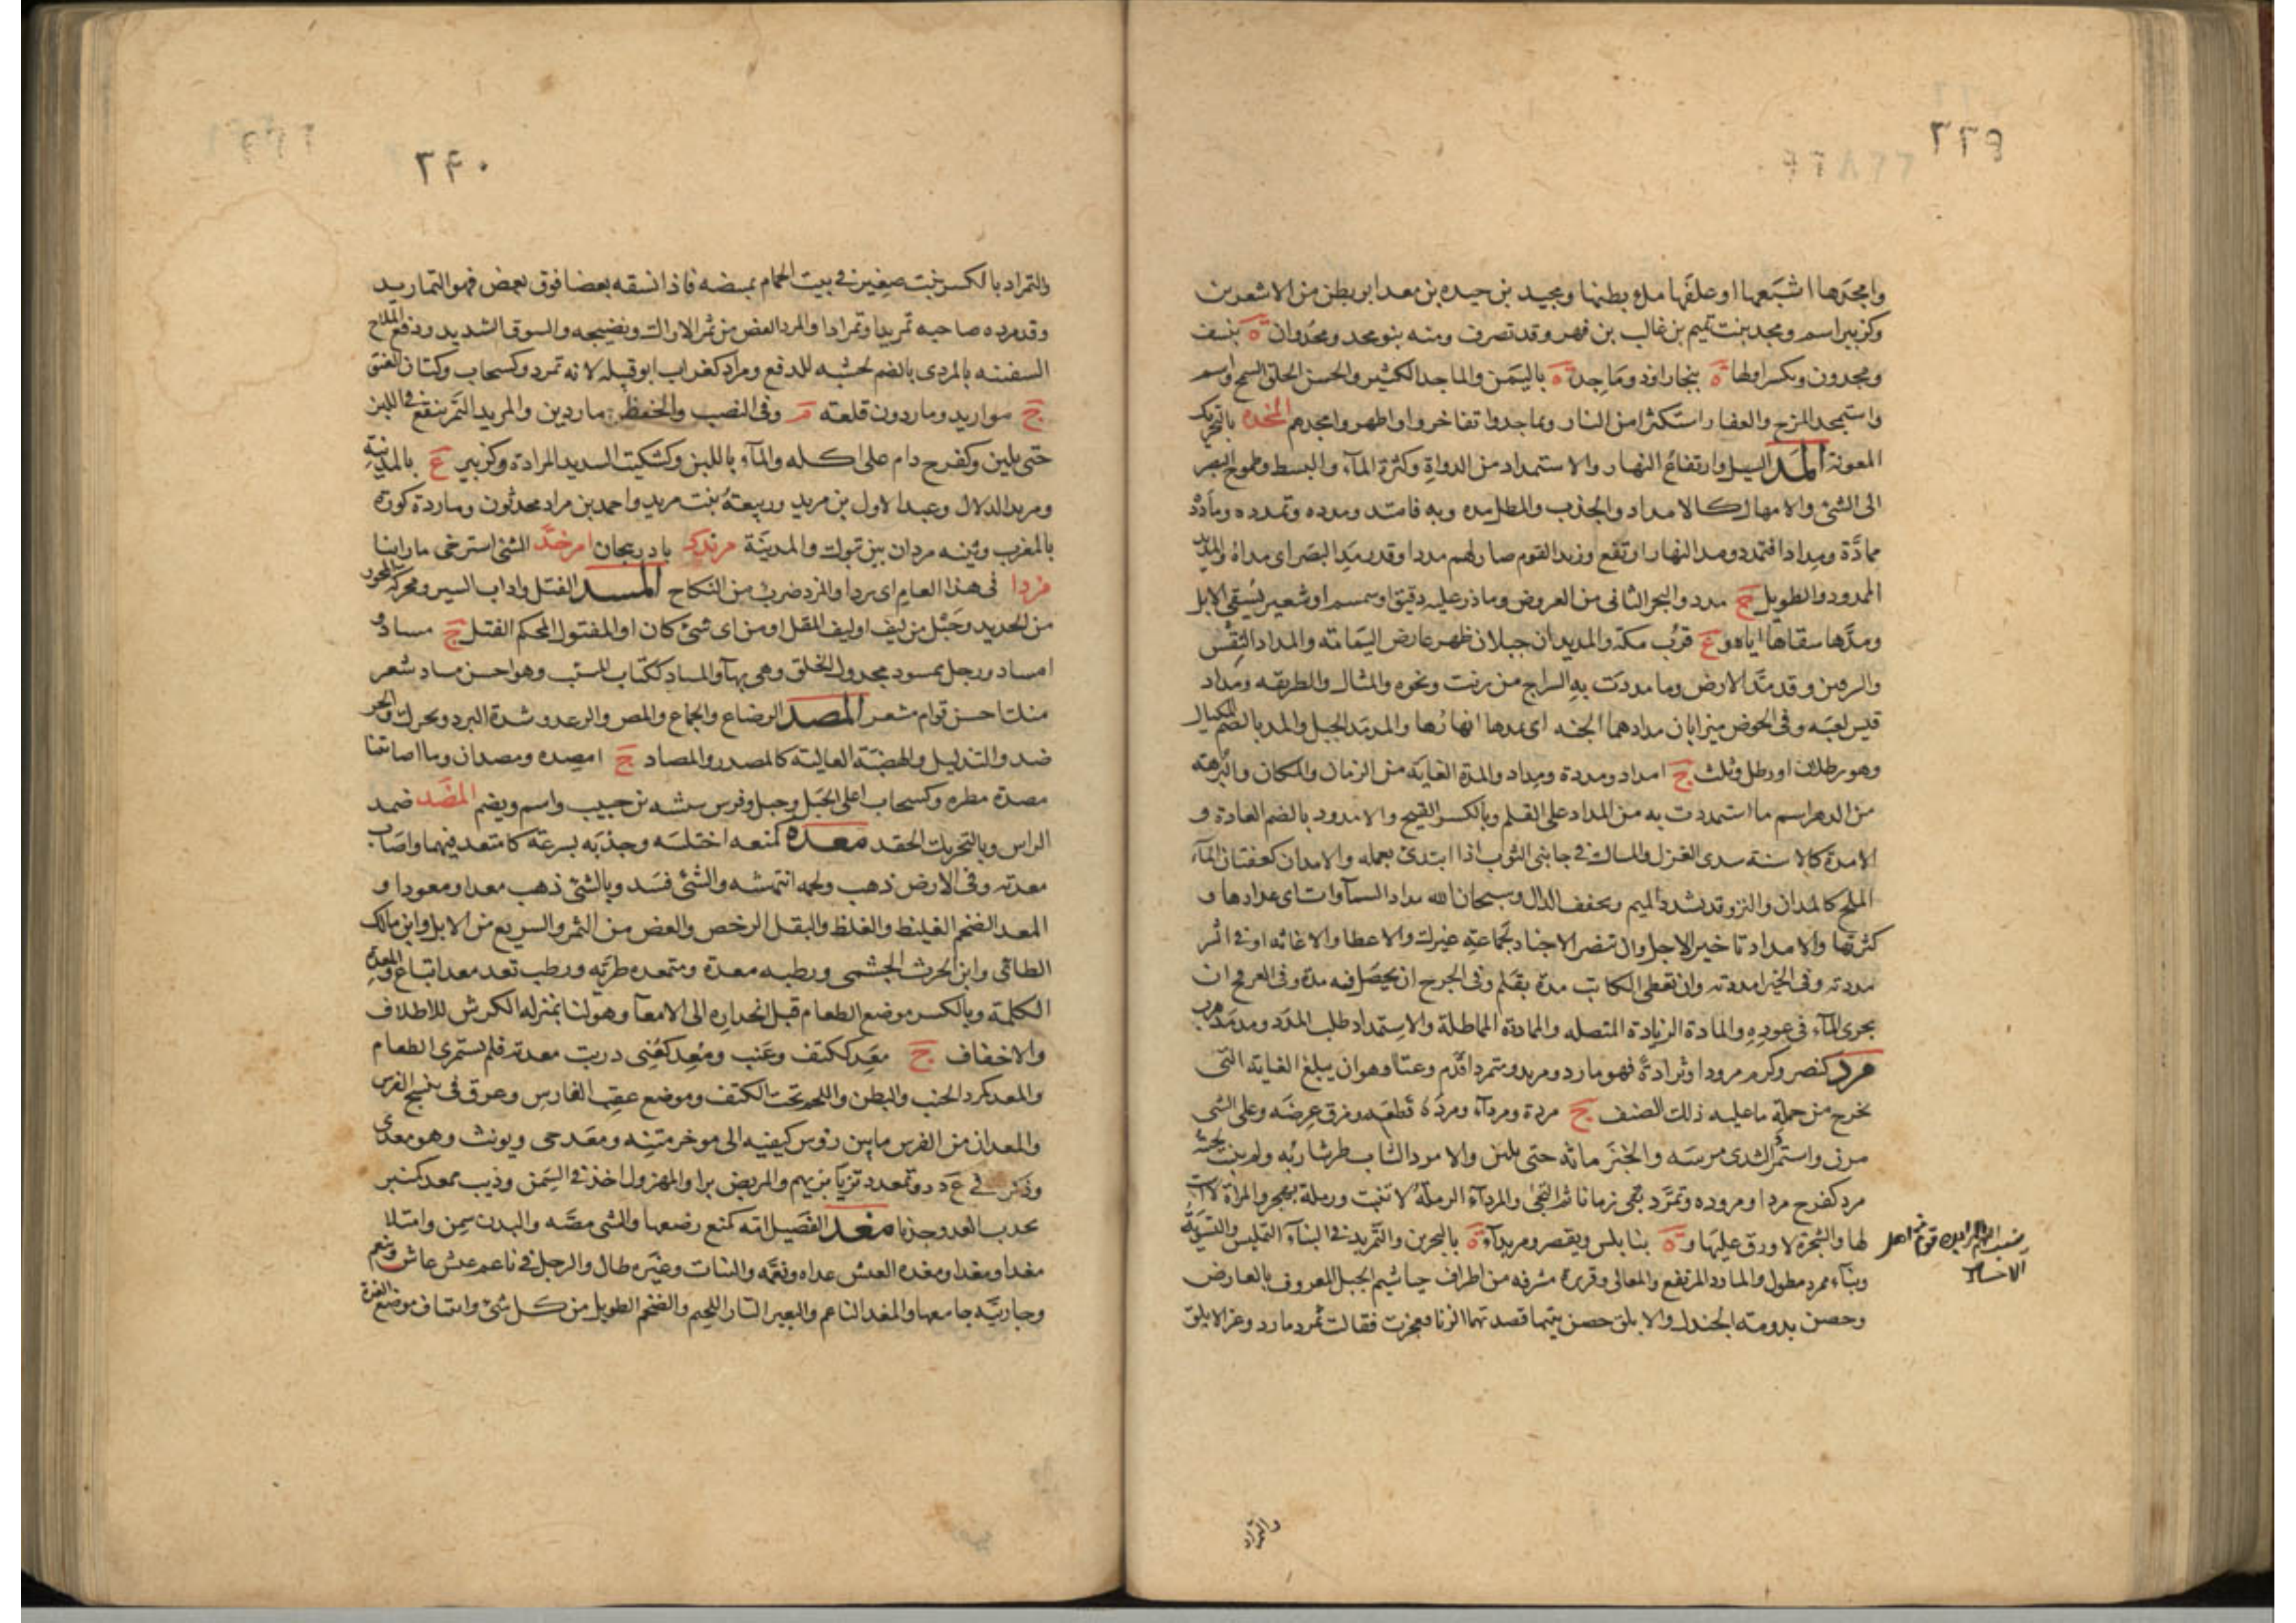 ٢٣٩
وامجدها اشبعها او علفها ملء بطنها ومجيد بن حيده بن معد ابو بطن من الاشعرين
وكزبير اسم ومجد بنت تميم بن غالب بن فهر وقد تصرف ومنه بنو مجد ومجدوان ة بنسف
ومجدون وبكسر اولها ة ببخارا وذو ماجد ة باليمن والماجد الكثير والحسن الخلق السمح واسم
واستمجد المرخ والعفار استكثرا من النار وتماجدوا تفاخروا واظهروا مجدهم بالتحريك
المعونة المد السيل وارتفاع النهار والاستمداد من الدواة وكثرة الماء والبسط وطموح البصر
الى الشئ والامهال كالامداد والجذب والمطل مده وبه فامتد ومدده وتمدده ومادد
ممادة ومدادا فتمدد ومد النهار ارتفع وزيد القوم صار لهم مددا وقد مد البصر اى مداه والمديد
الممدود والطويل ج مدد والبحر الثانى من العروض وما ذر عليه دقيق او سمسم او شعير ليسقى الابل
ومدها سقاها اياه و ع قرب مكة والمديدان جبلان ظهر عارض اليمامة والمداد النقس
والرقين وقد مد الارض وما مددت به السراج من زيت ونحوه والمثال والطريقه ومداد
قيس لعبه وفى الحوض ميزابان مدادهما الجنه اى تمدها انهارها والمدمد الجبل والمد بالضم المكيال
وهو رطلان او رطل وثلث ج امداد ومددة ومداد والمدة الغاية من الزمان والمكان والبرهة
من الدهر اسم ما استمددت به من المداد على القلم وبالكسر القيح والامدود بالضم العادة و
الامدة كالاسنة سدى الغزل والمساك فى جانبى الثوب اذا ابتدئ بعمله والامدان كعفتان الماء
الملح كالمدان والنز وقد تشدد الميم وتخفف الدال وسبحان الله مداد السموات اى عدادها و
كثرتها والامداد تاخير الاجل وان تنصر الاجناد بجماعة غيرك والاعطا والاغاثه او فى الشر
مددته وفى الخير امددته وان تعطى الكاتب مدة بقلم وفى الجرح ان يحصل فيه مدة وفى العرفج ان
يجرى الماء فى عوده والمادة الزيادة المتصله والممادة المماطلة والاستمداد طلب المدد ومدمد هرب
مرد كنصر وكرم مرودا ومرادة فهو مارد ومريد ومتمرد اقدم وعتا او هو ان يبلغ الغاية التى
يخرج من جملة ما عليه ذلك الصنف ج مردة ومرداء ومرده قطعه ومزق عرضه وعلى الشى
مرن واستمر والثدى مرسه والخبز ماثه حتى يلين والامرد الشاب طر شاربه ولم تنبت لحيته
مرد كفرح مردا ومروده وتمرد بقى زمانا ثم التحى والمرداء الرملة لا تنبت ورملة بهجر والمراة لا است
لها والشجرة لا ورق عليها و ة بنابلس ويقصر ومريداء ة بالبحرين والتمريد فى البناء التمليس والتسوية
وبناء ممرد مطول والمارد المرتفع والعاتى وقريرة مشرفه من اطراف خياشيم الجبل المعروف بالعارض
وحصن بدومة الجندل والابلق حصن بتيما قصدتهما الزبا فعجزت فقالت تمرد مارد وعز الابلق
والتمراد
٢٤٠
والتمراد بالكسر بيت صغير فى بيت الحمام لمبيضه فاذا نسقه بعضا فوق بعض فهو التماريد
وقد مرده صاحبه تمريدا وتمرادا والمرد الغض من ثمر الاراك ونضيجه والسوق الشديد ودفع الملاح
السفينه بالمردى بالضم لخشبه للدفع ومراد كغراب ابو قبيله لانه تمرد وكسحاب وكتان العنق
ج مواريد وماردون قلعة م وفى النصب والخفض ماردين والمريد التمر ينقع فى اللبن
حتى يلين وكفرح دام على اكله والماء باللبن وكسكيت الشديد المرادة وكزبير ع بالمدينة
ومريد الدلال وعبد الاول بن مريد وربيعة بنت مريد واحمد بن مراد محدثون وماردة كورة
بالمغرب وثنيه مردان بين تبوك والمدينة مرند د باذربيجان امرخد الشئ استرخى ما راينا
مزدا فى هذا العام اى بردا والمزد ضرب من النكاح المسد الفتل واداب السير ومحركة المحور
من الحديد وحبل من ليف او ليف المقل او من اى شئ كان او المفتول المحكم الفتل ج مساد و
امساد ورجل ممسود مجدول الخلق وهى بهاء والمساد ككتاب المسئب وهو احسن مساد شعر
منك احسن قوام شعر المصد الرضاع والجماع والمص والرعد وشدة البرد وتحرك والحر
ضد والتذليل والهضبة العالية كالمصدر والمصاد ج امصده ومصدان وما اصابتنا
مصدة مطره وكسحاب اعلى الجبل وجبل وفرس نبيشه بن حبيب واسم ويضم المضد ضمد
الراس وبالتحريك الحقد معده كمنعه اختلسه وجذبه بسرعة كامتعد فيهما واصاب
معدته وفى الارض ذهب ولحمه انتهشه والشئ فسد وبالشئ ذهب معدا ومعودا و
المعد الضخم الغليظ والغلظ والبقل الرخص والغض من الثمر والسريع من الابل وابن مالك
الطائى وابن الحرث الجشمى ورطبه معدة ومتمعده طريه ورطب ثعد معد اتباع والمعدة
ككلمة وبالكسر موضع الطعام قبل انحداره الى الامعاء وهو لنا بمنزله الكرش للاظلاف
والاخفاف ج معد ككتف وعنب ومعد كعنى دربت معدته فلم تستمرئ الطعام
والمعد كمرد الجنب والبطن واللحم تحت الكتف وموضع عقب الفارس وعرق فى منسج الفرس
والمعدان من الفرس ما بين رؤس كتفيه الى موخر متنه ومعد حى ويونث وهو معدى
وذكر فى ع د د وتمعدد تزيا بزيهم والمريض برا والمهزول اخذ فى السمن وذيب ممعد كمنبر
يجذب العدو جذبا مغد الفصيل امه كمنع رضعها والشى مصه والبدن سمن وامتلا
مغدا ومغدا ومغده العيش غذاه ونعمه والنبات وغيره طال والرجل فى ناعم عيش عاش وتنعم
وجاريته جامعها والمغد الناعم والبعير التار اللحيم والضخم الطويل من كل شئ وانتتاف موضع الغرة